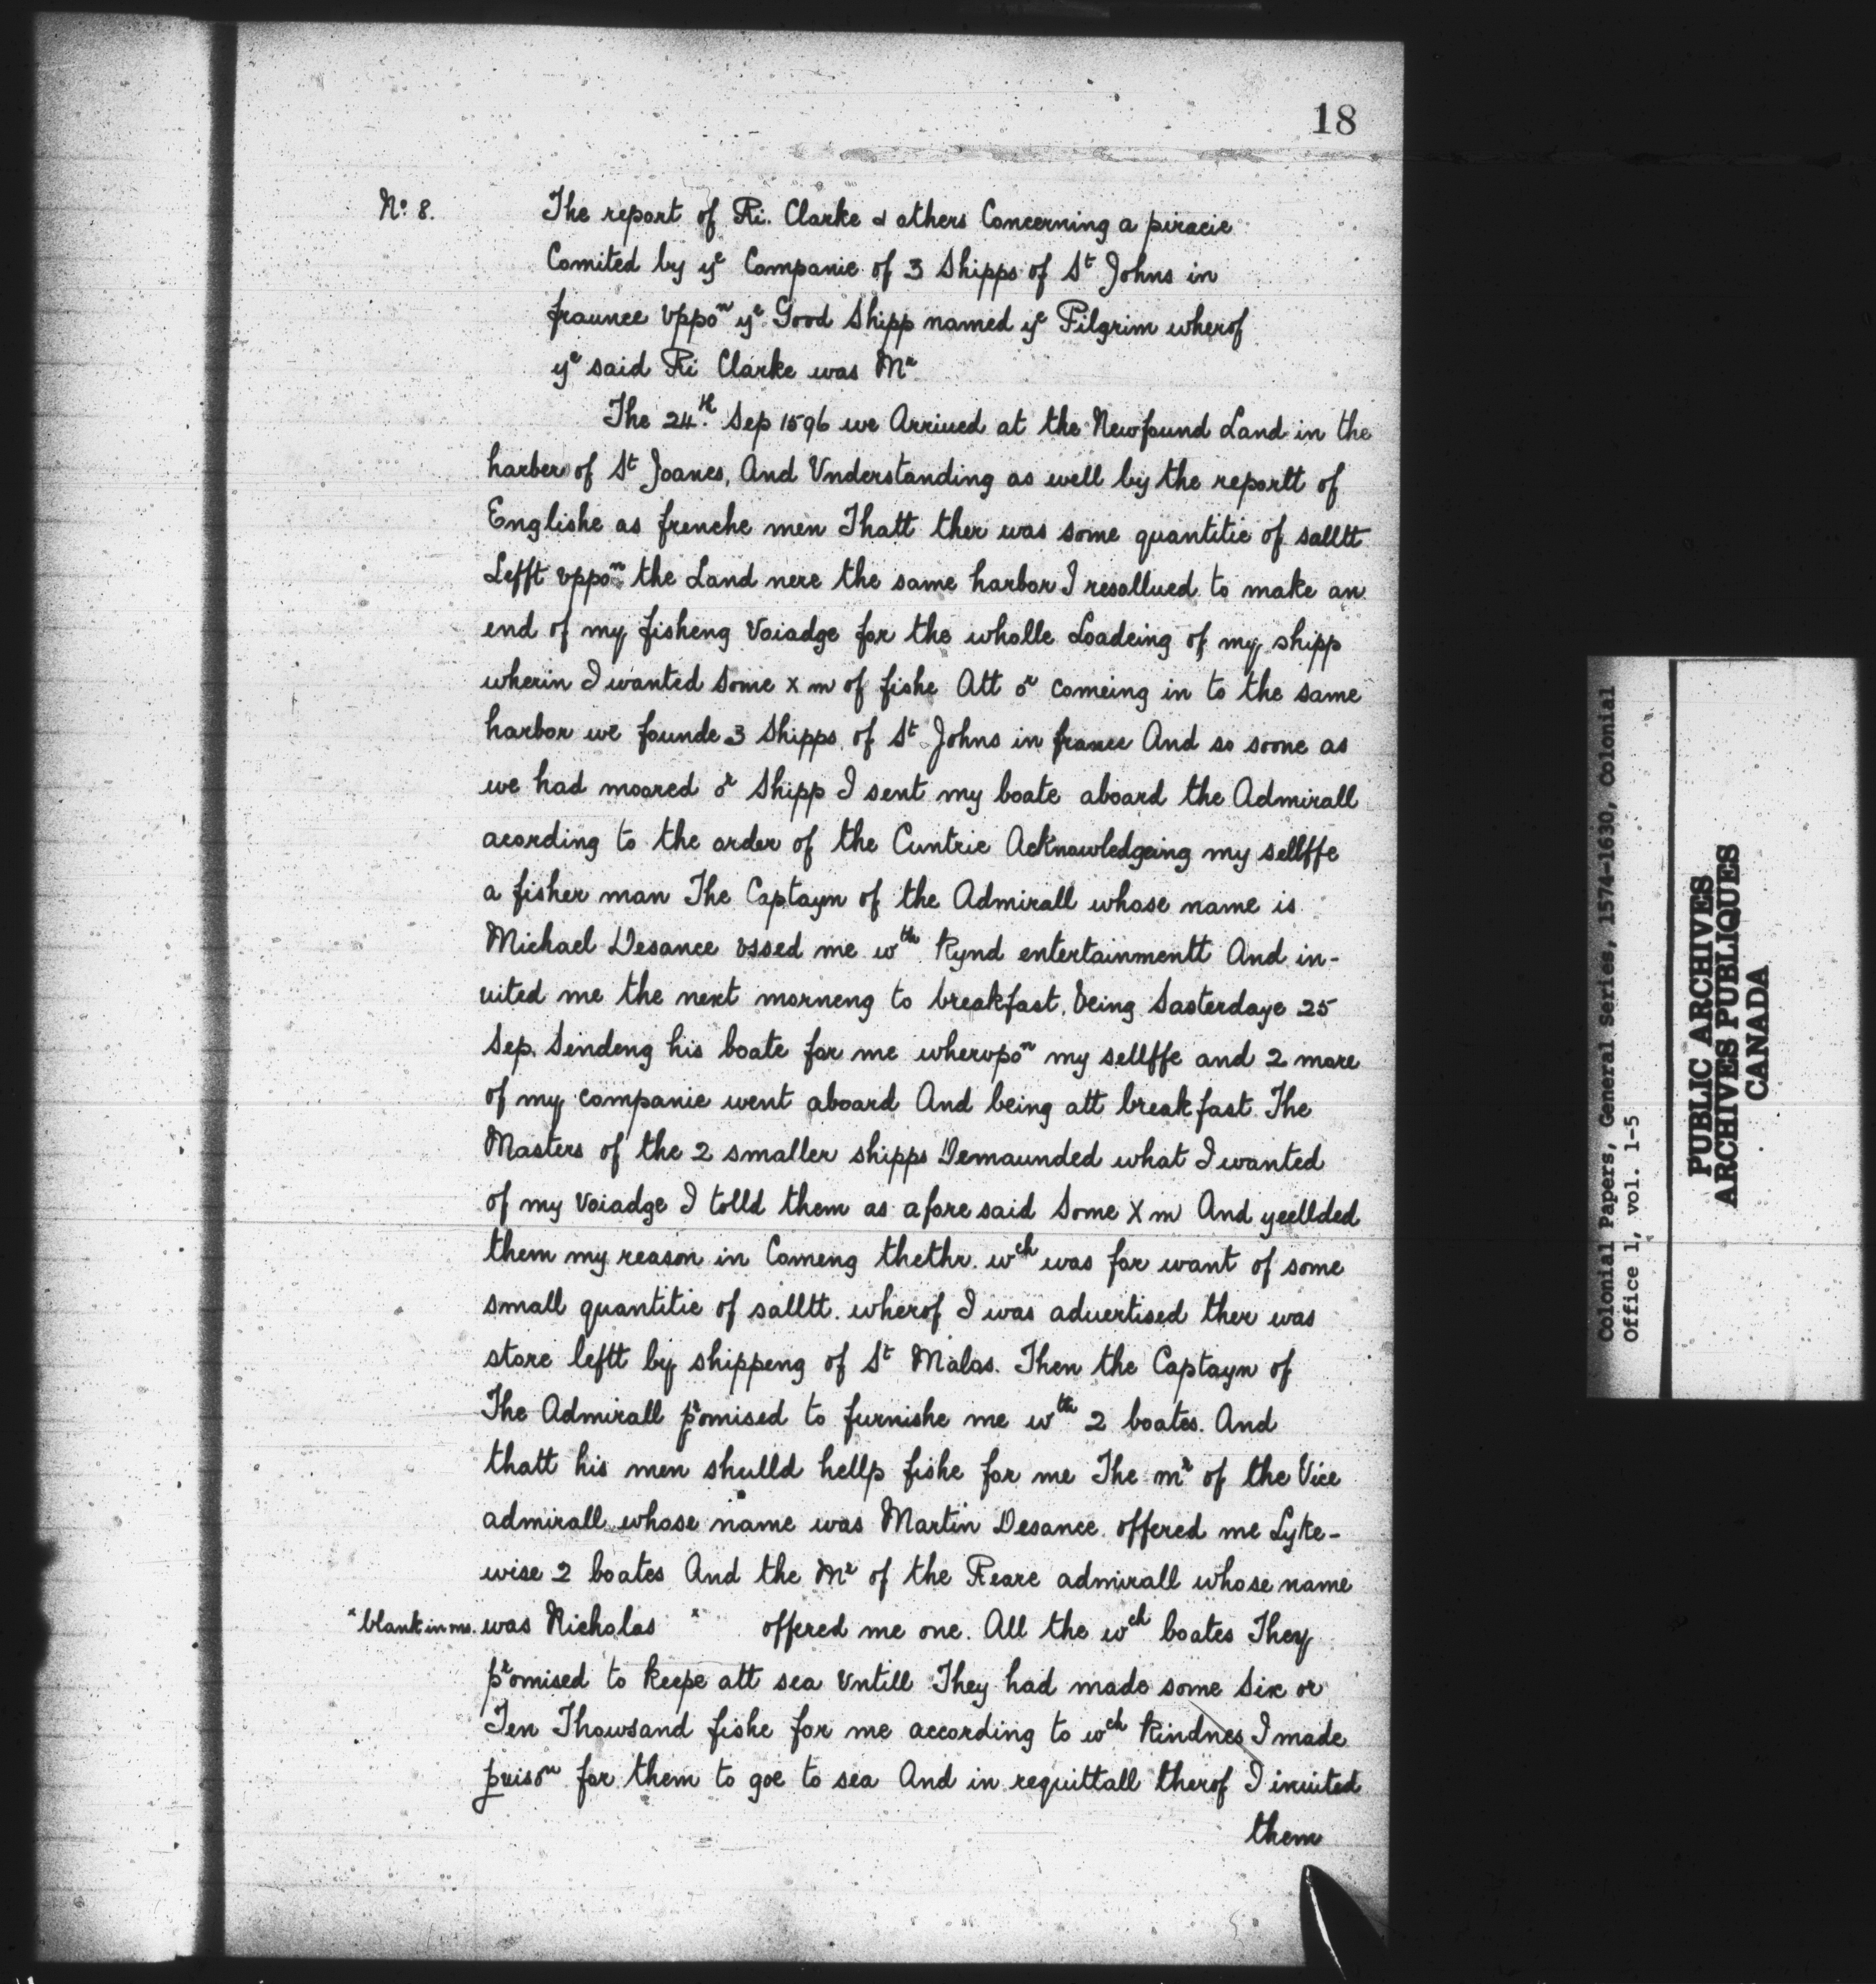 18
No. 8.
The report of Ri. Clarke & others Concerning a piracie
Comited by ye Companie of 3 Shipps of St Johns in
fraunce vppon ye Good Shipp named ye Pilgrim wherof
ye said Ri Clarke was Mr
The 24th. Sep 1596 we Arriued at the Newfound Land in the
harber of St Joanes, And Vnderstanding as well by the reportt of
Englishe as frenche men Thatt ther was some quantitie of salltt
Lefft vppon the Land nere the same harbor I resollued to make an
end of my fisheng Voiadge for the wholle Loadeing of my shipp
wherin I wanted some x m of fishe Att or comeing in to the same
harbor we founde 3 Shipps of St Johns in france And so soone as
we had moored or Shipp I sent my boate aboard the Admirall
acording to the order of the Cuntrie Acknowledgeing my sellffe
a fisher man The Captayn of the Admirall whose name is
Michael Desance vssed me wth Kynd entertainmentt And in-
uited me the next morneng to breakfast, being Sasterdaye 25
Sep. Sendeng his boate for me whervpon my sellffe and 2 more
of my companie went aboard And being att breakfast The
Masters of the 2 smaller shipps Demaunded what I wanted
of my Voiadge I tolld them as afore said Some X m And yeellded
them my reason in Comeng thethr. wch was for want of some
small quantitie of salltt. wherof I was aduertised ther was
store leftt by shippeng of St Malos. Then the Captayn of
The Admirall promised to furnishe me wth 2 boates. And
thatt his men shulld hellp fishe for me The mr of the Vice
admirall whose name was Martin Desance offered me Lyke-
wise 2 boates And the Mr of the Reare admirall whose name
x blank in ms. was Nicholas x offered me one. All the wch boates They
promised to keepe att sea Vntill They had made some Six or
Ten Thowsand fishe for me according to wch Kindnes I made
puison for them to goe to sea And in requittall therof I inuited
them
Colonial Papers, General Series, 1574-1630, Colonial
Office 1, vol. 1-5
PUBLIC ARCHIVES
ARCHIVES PUBLIQUES
CANADA